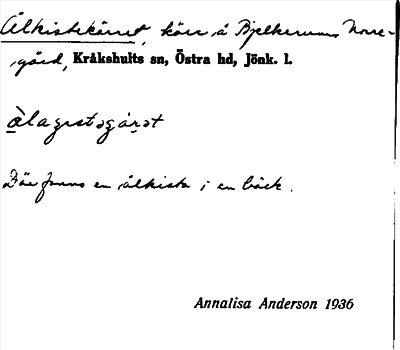 Ålkistekärret, kärr å Bjelkerums Norre-
gård, Kråkshults sn, Östra hd, Jönk. l.
Där fanns en ålkista i en bäck.
Annalisa Anderson 1936